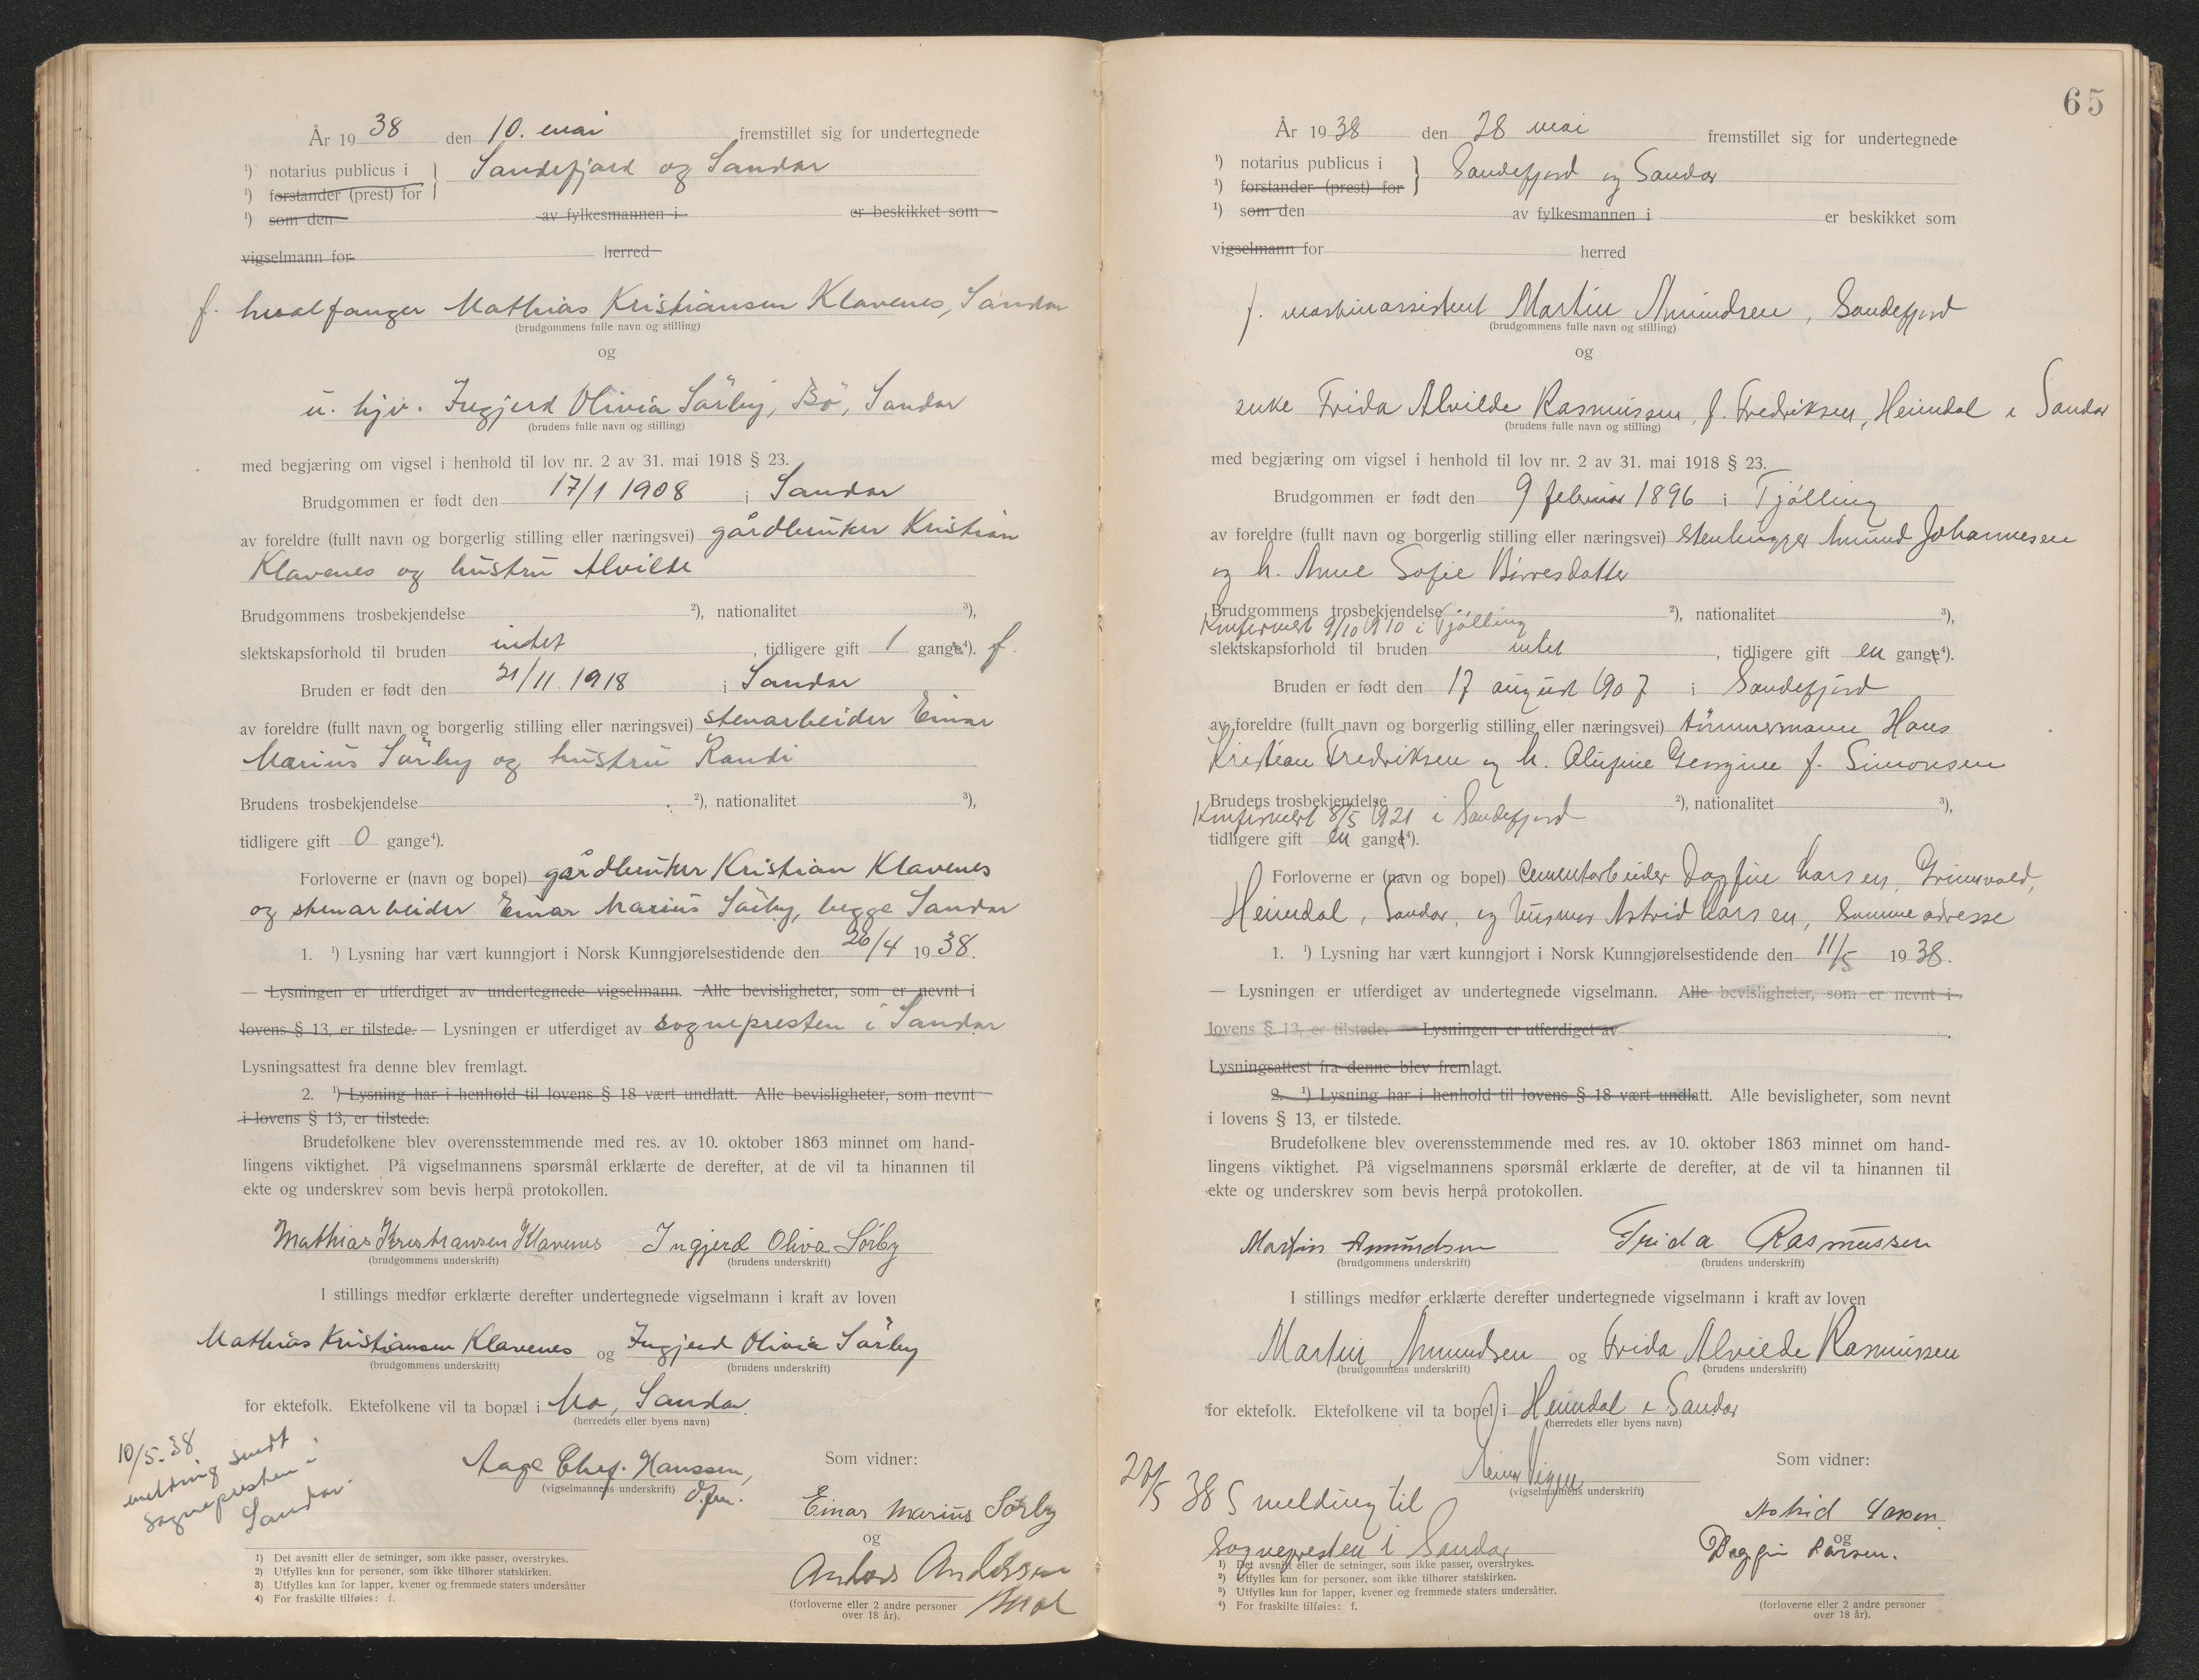 År 1938 den 10. mai fremstillet sig for undertegnede
¹) notarius publicus i } Sandefjord og Sandar
¹) forstander (prest) for
¹) som den av fylkesmannen i er beskikket som
vigselmann for herred
f. hvalfanger Mathias Kristiansen Klavenes, Sandar
(brudgommens fulle navn og stilling)
og
u. hjv. Ingjerd Olivia Sörby, Bö, Sandar
(brudens fulle navn og stilling)
med begjæring om vigsel i henhold til lov nr. 2 av 31. mai 1918 § 23.
Brudgommen er født den 17/1 1908 i Sandar
av foreldre (fullt navn og borgerlig stilling eller næringsvei) gårdbruker Kristian
Klavenes og hustru Alvilde
Brudgommens trosbekjendelse ²), nationalitet ³),
slektskapsforhold til bruden intet, tidligere gift 1 gange⁴). f.
Bruden er født den 21/11 1918 i Sandar
av foreldre (fullt navn og borgerlig stilling eller næringsvei) stenarbeider Einar
Marius Sörby og hustru Randi
Brudens trosbekjendelse ²), nationalitet ³),
tidligere gift 0 gange⁴).
Forloverne er (navn og bopel) gårdbruker Kristian Klavenes
og stenarbeider Einar Marius Sörby, begge Sandar
1. ¹) Lysning har vært kunngjort i Norsk Kunngjørelsestidende den 26/4 1938.
— Lysningen er utferdiget av undertegnede vigselmann. Alle bevisligheter, som er nevnt i
lovens § 13, er tilstede. — Lysningen er utferdiget av sognepresten i Sandar
Lysningsattest fra denne blev fremlagt.
2. ¹) Lysning har i henhold til lovens § 18 vært undlatt. Alle bevisligheter, som nevnt
i lovens § 13, er tilstede.
Brudefolkene blev overensstemmende med res. av 10. oktober 1863 minnet om hand-
lingens viktighet. På vigselmannens spørsmål erklærte de derefter, at de vil ta hinannen til
ekte og underskrev som bevis herpå protokollen.
Mathias Kristiansen Klavenes Ingjerd Oliva Sörby
(brudgommens underskrift) (brudens underskrift)
I stillings medfør erklærte derefter undertegnede vigselmann i kraft av loven
Mathias Kristiansen Klavenes og Ingjerd Olivia Sörby
(brudgommens underskrift) (brudens underskrift)
for ektefolk. Ektefolkene vil ta bopæl i Mo, Sandar.
(herredets eller byens navn)
10/5-38
melding sendt
sognepresten i
Sandar.
Aage Chr. Hanssen,
(vigselmannens underskrift)
Som vidner:
Einar Marius Sörby
og
Anders Andersen
(forloverne eller 2 andre personer
over 18 år).
1) Det avsnitt eller de setninger, som ikke passer, overstrykes.
2) Utfylles kun for personer, som ikke tilhører statskirken.
3) Utfylles kun for lapper, kvener og fremmede staters undersåtter
4) For fraskilte tilføies: f.
65
År 1938 den 28 mai fremstillet sig for undertegnede
¹) notarius publicus i } Sandefjord og Sandar
¹) forstander (prest) for
¹) som den av fylkesmannen i er beskikket som
vigselmann for herred
f. maskinassistent Martin Amundsen, Sandefjord
(brudgommens fulle navn og stilling)
og
enke Frida Alvilde Rasmussen, f. Fredriksen, Heimdal i Sandar
(brudens fulle navn og stilling)
med begjæring om vigsel i henhold til lov nr. 2 av 31. mai 1918 § 23.
Brudgommen er født den 9 februar 1896 i Tjølling
av foreldre (fullt navn og borgerlig stilling eller næringsvei) stenhugger Amund Johannesen
og h. Anne Sofie Børresdatter
Brudgommens trosbekjendelse ²), nationalitet ³),
Konfirmert 9/10 1910 i Tjølling
slektskapsforhold til bruden intet, tidligere gift en gange⁴).
Bruden er født den 17 august 1907 i Sandefjord
av foreldre (fullt navn og borgerlig stilling eller næringsvei) tömmermann Hans
Kristian Fredriksen og h. Georgine f. Simonsen
Brudens trosbekjendelse ²), nationalitet ³),
Konfirmert 8/5 1921 i Sandefjord
tidligere gift en gang⁴).
Forloverne er (navn og bopel) cementarbeider Dagfin Larsen, Grimsvold,
Heimdal, Sandar, og husmor Astrid Larsen, samme adresse
1. ¹) Lysning har vært kunngjort i Norsk Kunngjørelsestidende den 11/5 1938.
— Lysningen er utferdiget av undertegnede vigselmann. Alle bevisligheter, som er nevnt i
lovens § 13, er tilstede. — Lysningen er utferdiget av
Lysningsattest fra denne blev fremlagt.
2. ¹) Lysning har i henhold til lovens § 18 vært undlatt. Alle bevisligheter, som nevnt
i lovens § 13, er tilstede.
Brudefolkene blev overensstemmende med res. av 10. oktober 1863 minnet om hand-
lingens viktighet. På vigselmannens spørsmål erklærte de derefter, at de vil ta hinannen til
ekte og underskrev som bevis herpå protokollen.
Martin Amundsen Frida Rasmussen
(brudgommens underskrift) (brudens underskrift)
I stillings medfør erklærte derefter undertegnede vigselmann i kraft av loven
Martin Amundsen og Frida Alvilde Rasmussen
(brudgommens underskrift) (brudens underskrift)
for ektefolk. Ektefolkene vil ta bopel i Heimdal i Sandar
(herredets eller byens navn)
(vigselmannens underskrift)
38 S melding til
Sognepresten i Sandar
Som vidner:
Astrid Larsen.
og
Dagfin Larsen.
(forloverne eller 2 andre personer
over 18 år).
¹) Det avsnitt eller de setninger, som ikke passer, overstrykes.
²) Utfylles kun for personer, som ikke tilhører statskirken.
³) Utfylles kun for lapper, kvener og fremmede staters undersåtter.
⁴) For fraskilte tilføies: f.